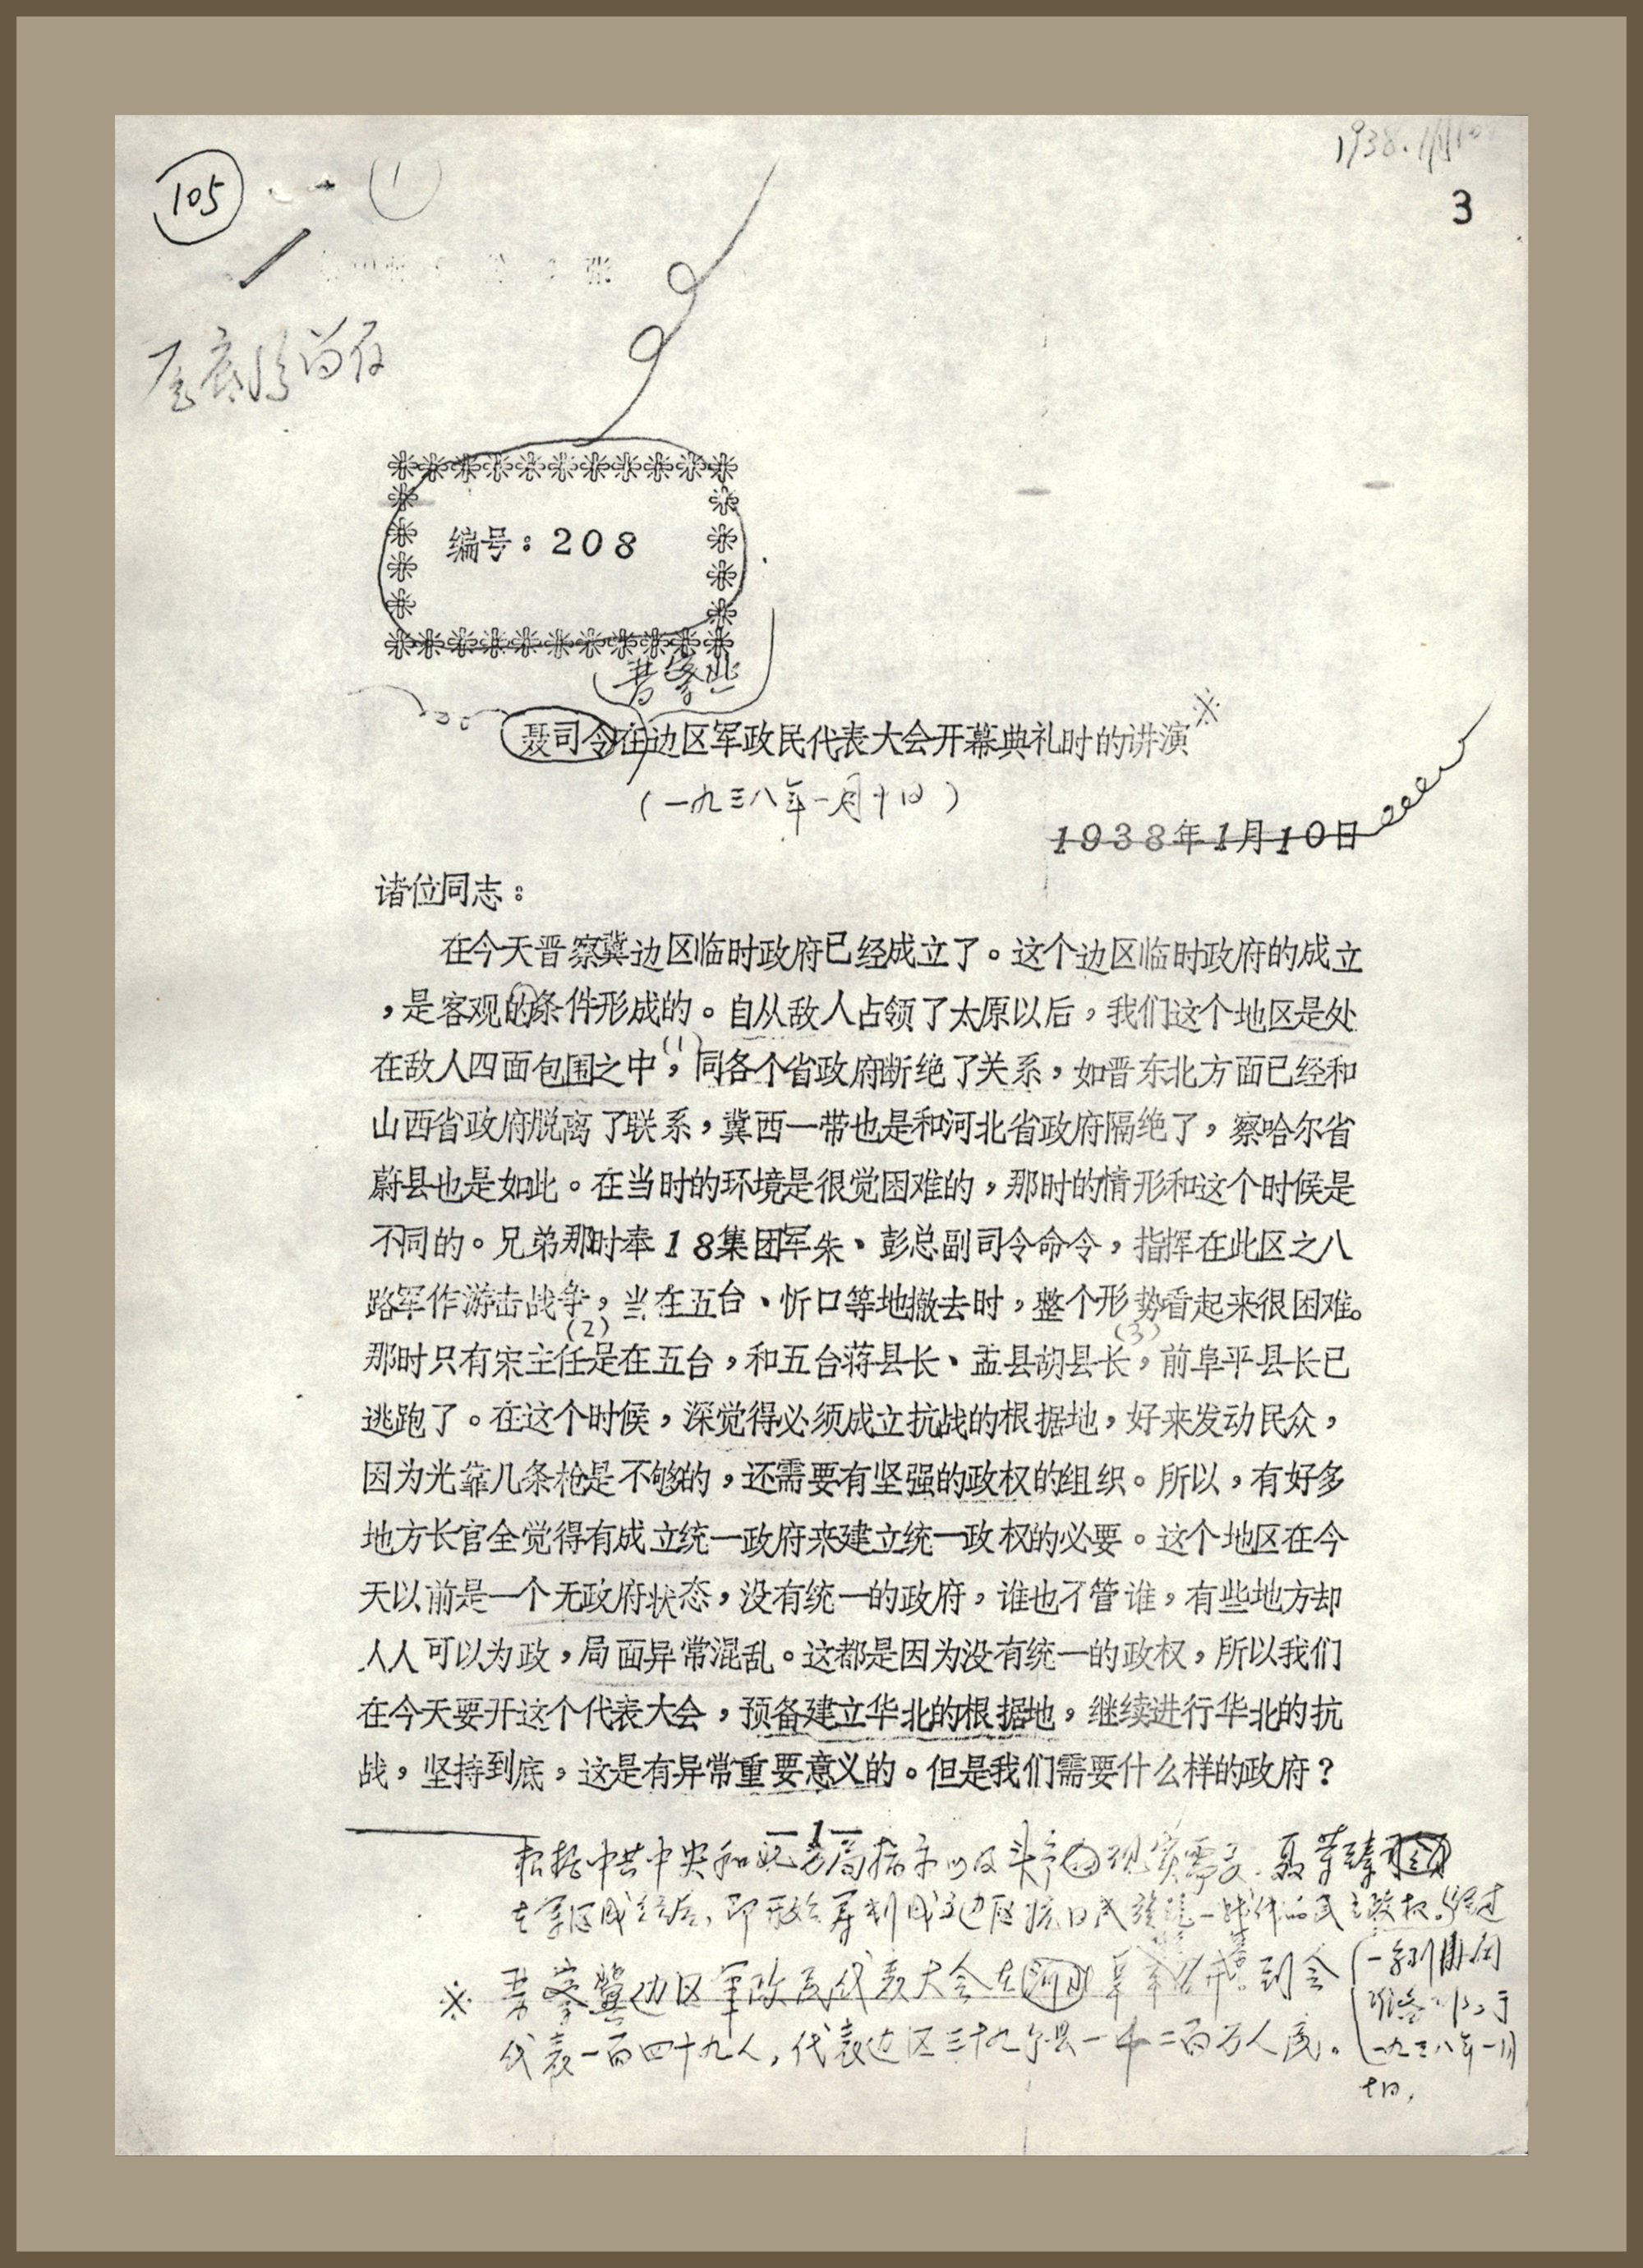 1938.1月10
105
1
3
张
编号：208
晋察冀
聂司令在边区军政民代表大会开幕典礼时的讲演※
（一九三八年一月十日）
1938年1月10日
诸位同志：
在今天晋察冀边区临时政府已经成立了。这个边区临时政府的成立
，是客观的条件形成的。自从敌人占领了太原以后，我们这个地区是处
(1)
在敌人四面包围之中，同各个省政府断绝了关系，如晋东北方面已经和
山西省政府脱离了联系，冀西一带也是和河北省政府隔绝了，察哈尔省
蔚县也是如此。在当时的环境是很觉困难的，那时的情形和这个时候是
不同的。兄弟那时奉18集团军朱、彭总副司令命令，指挥在此区之八
路军作游击战争，当在五台、忻口等地撤去时，整个形势看起来很困难。
(2) (3)
那时只有宋主任是在五台，和五台蒋县长、盂县胡县长，前阜平县长已
逃跑了。在这个时候，深觉得必须成立抗战的根据地，好来发动民众，
因为光靠几条枪是不够的，还需要有坚强的政权的组织。所以，有好多
地方长官全觉得有成立统一政府来建立统一政权的必要。这个地区在今
天以前是一个无政府状态，没有统一的政府，谁也不管谁，有些地方却
人人可以为政，局面异常混乱。这都是因为没有统一的政权，所以我们
在今天要开这个代表大会，预备建立华北的根据地，继续进行华北的抗
战，坚持到底，这是有异常重要意义的。但是我们需要什么样的政府？
—1—
根据中共中央和北方局指示以及现实需要，聂荣臻
在军区成立后，即开始筹划成立边区抗日民族统一战线的民主政权。经过
一系列
准备，于
一九三八年一月
十日，
※ 晋察冀边区军政民代表大会在河北阜平召开。到会
代表一百四十九人，代表边区三十九个县一千二百万人民。